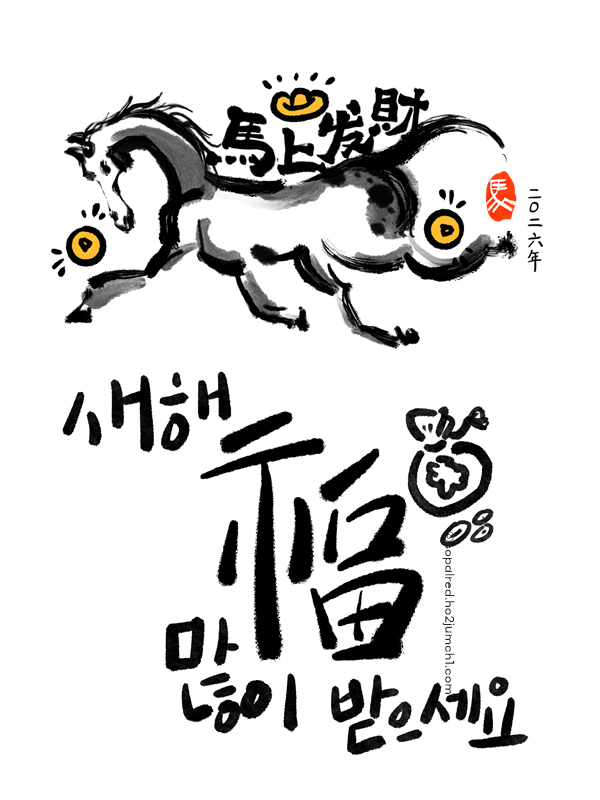 馬上发財
馬
二〇二六年
새해
福
많이 받으세요
opalred.ho2jumoh1.com